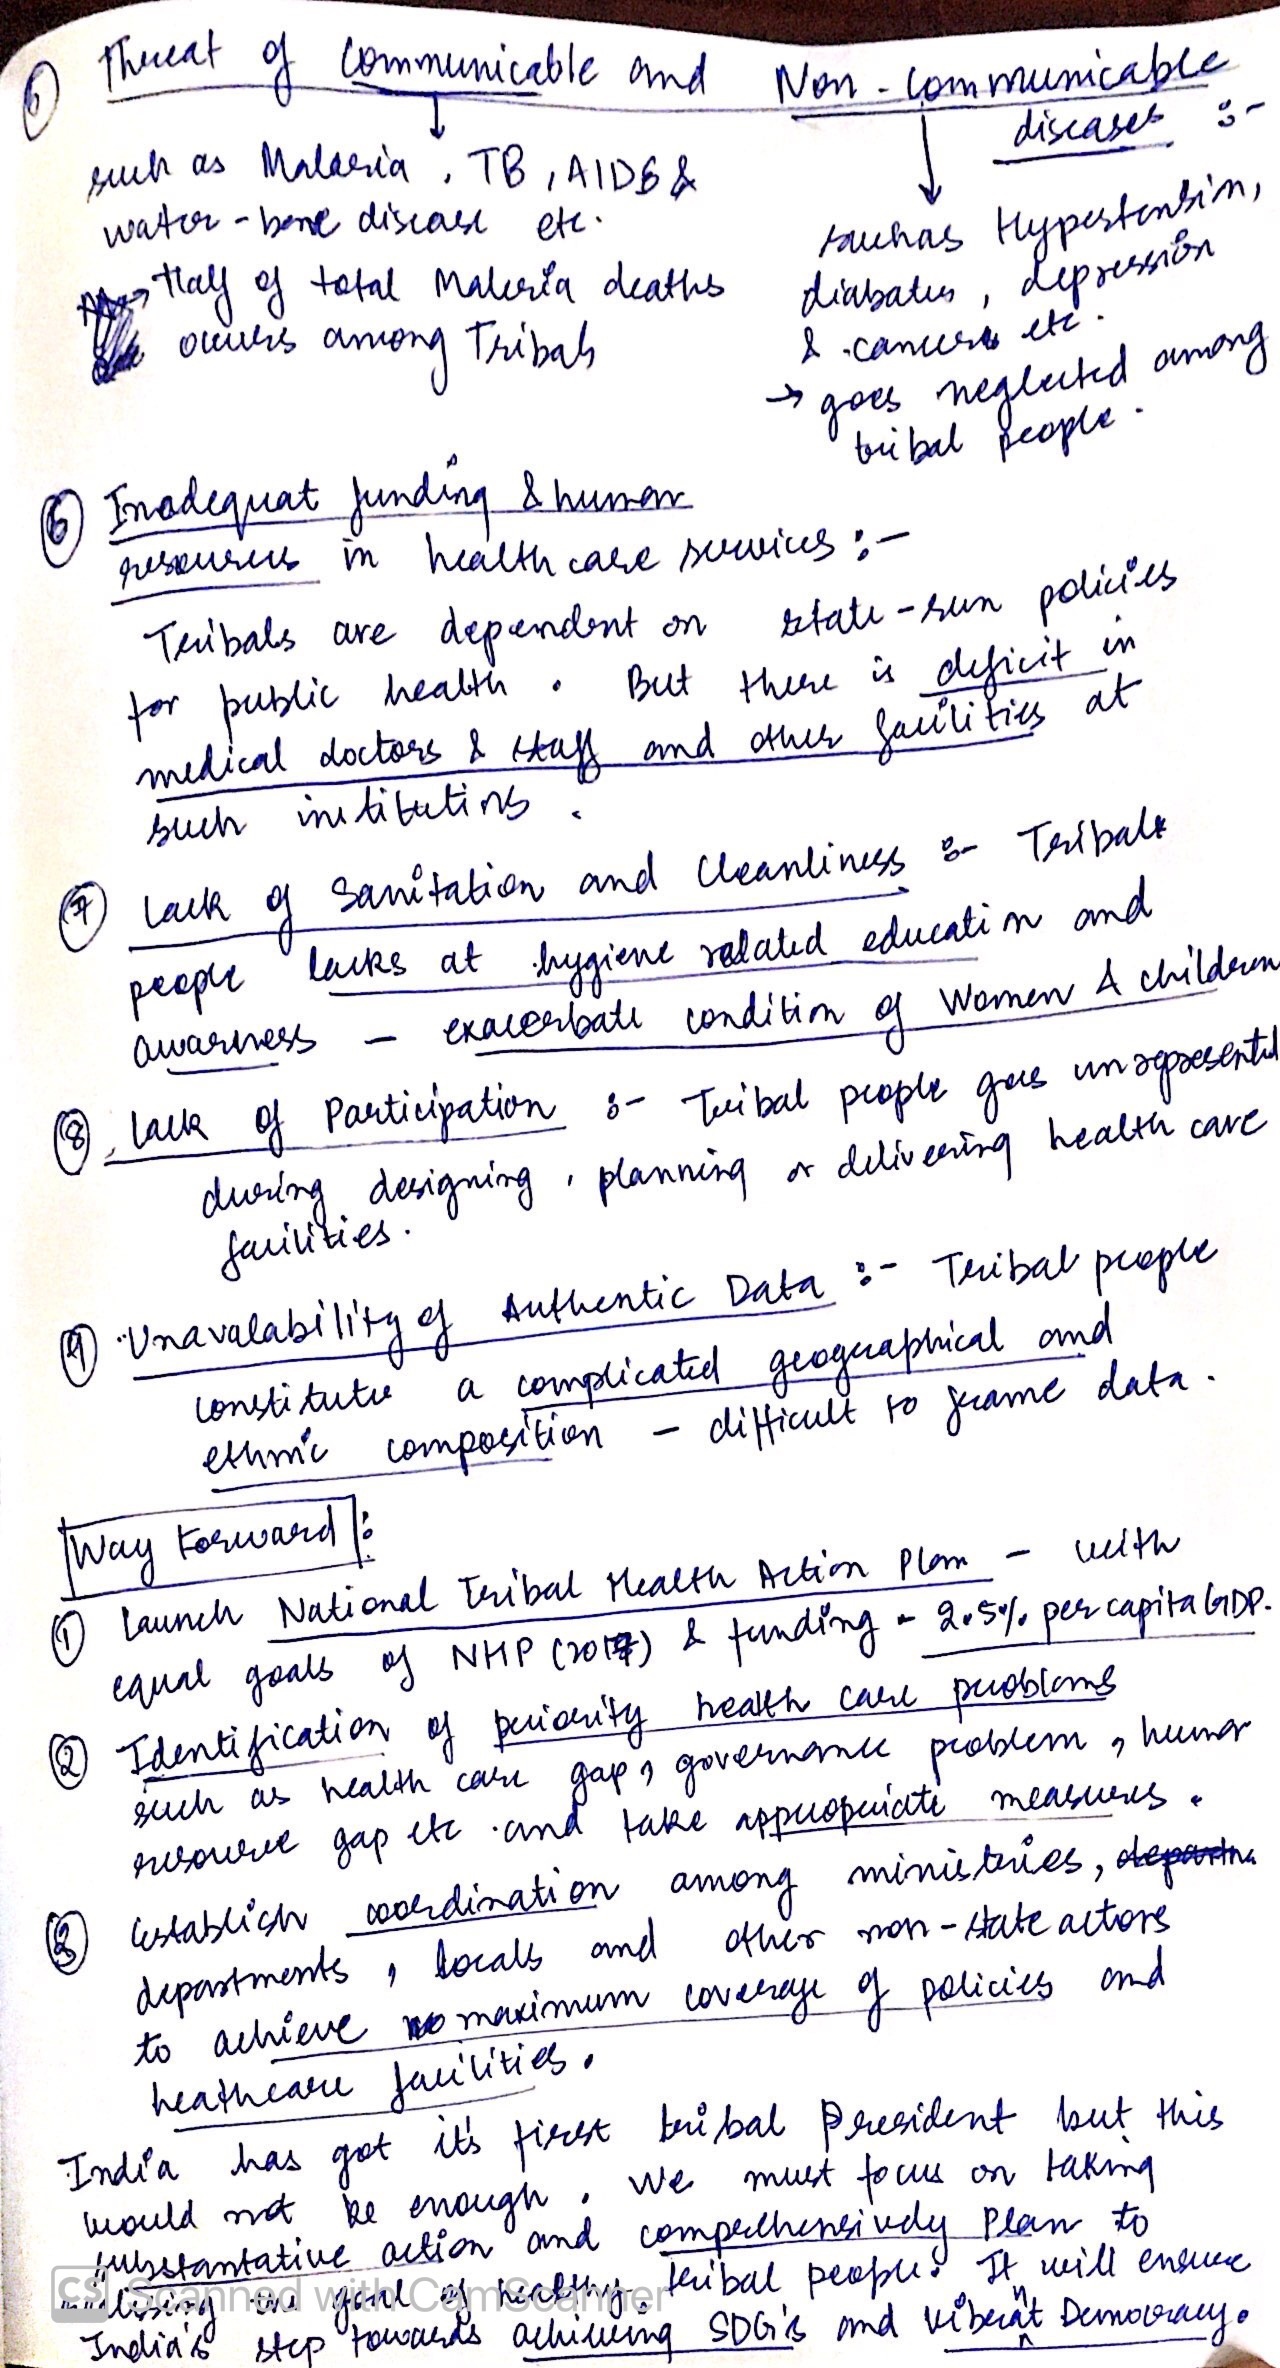 5 Threat of Communicable and Non-Communicable
diseases :-
such as Malaria, TB, AIDS &
water-bone disease etc.
→ Half of total Malaria deaths
occurs among Tribals
such as Hypertension,
diabates, depression
& cancers etc.
→ goes neglected among
tribal people.
6 Inadequat funding & human
resources in health care services :-
Tribals are dependent on state-run policies
for public health. But there is deficit in
medical doctors & staff and other facilities at
such institutions.
7 Lack of Sanitation and Cleanliness :- Tribals
people lacks at hygiene related education and
awarness - exacerbate condition of Women & children
8 Lack of Participation :- Tribal people goes unrepresented
during designing, planning or delivering health care
facilities.
9 Unavalability of Authentic Data :- Tribal people
constitute a complicated geographical and
ethnic composition - difficult to frame data.
Way Forward :
1 Launch National Tribal Health Action Plan - with
equal goals of NHP (2017) & funding - 2.5% per capita GDP.
2 Identification of priority health care problems
such as health care gap, governance problem, human
resource gap etc. and take appropriate measures.
3 Establish coordination among ministries,
departments, locals and other non-state actors
to achieve maximum coverage of policies and
heathcare facilities.
India has got it's first tribal President but this
would not be enough. We must focus on taking
substantative action and comprehensively plan to
the goal of healthy tribal people. It will ensure
India's step towards achieving SDG's and vibrant Democracy.
CS Scanned with CamScanner